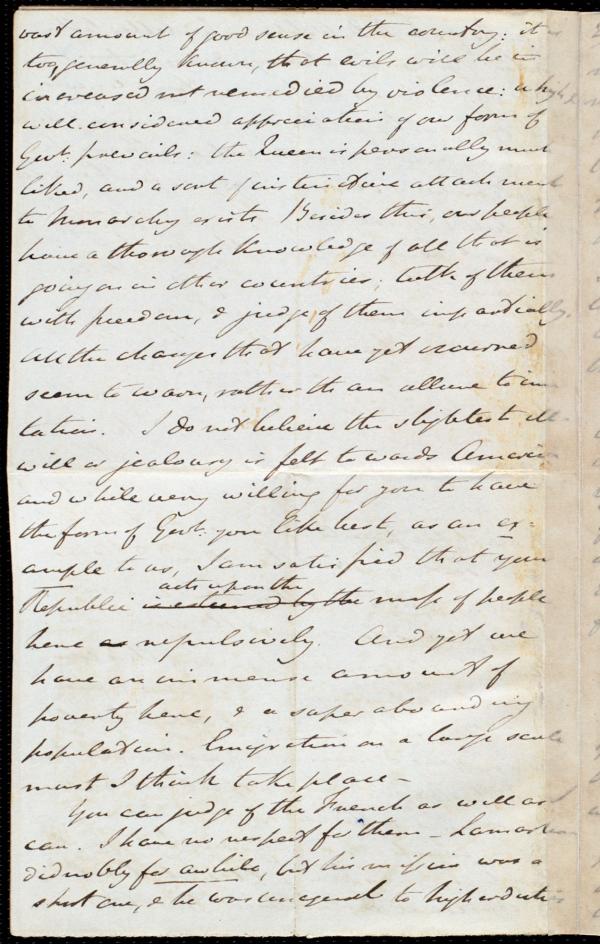 vast amount of good sense in the country: it is
too, generally known, that evils will be in
increased not remedied by violence: a high &
well considered appreciation of our form of
Govt: prevails: the Queen is personally much
liked, and a sort of instinctive attachment
to Monarchy exists. Besides this, our people
have a thorough knowledge of all that is
going on in other countries; talk of them
with freedom, & judge of them impartially.
All the changes that have yet occurred
seem to warn, rather than allure to imi
tation. I do not believe the slightest ill
will or jealousy is felt towards America
and while very willing for you to have
the form of Govt: you like best, as an ex-
ample to us, I am satisfied that your
Republic is esteemed by the acts upon the mass of people
here as repulsively. And yet we
have an immense amount of
poverty here, & a superabounding
population. Emigration on a large scale
must I think take place—
You can judge of the French as well as I
can. I have no respect for them — Lamartine
did nobly for awhile, but his mission was a
short one, & he was unequal to high duties